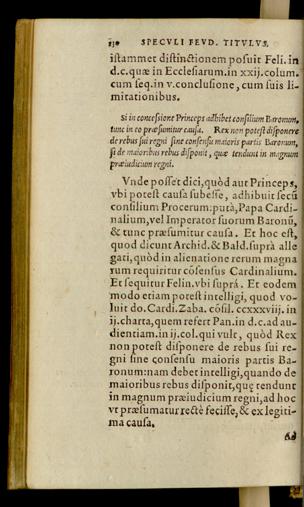 130 SPECVLI FEVD. TITVLVS.
istammet distinctionem posuit Feli. in
d.c. quæ in Ecclesiarum. in xxij. colum.
cum seq. in v. conclusione, cum suis li-
mitationibus.
Si in concessione Princeps adhibet consilium Baronum,
tunc in eo præsumitur causa. Rex non potest disponere
de rebus sui regni sine consensu maioris partis Baronum,
si de maioribus rebus disponit, quæ tendunt in magnum
præiudicium regni.
Vnde posset dici, quòd aut Princeps,
vbi potest causa subesse, adhibuit secũ
consilium Procerum: putà, Papa Cardi-
nalium, vel Imperator suorum Baronũ,
& tunc præsumitur causa. Et hoc est,
quod dicunt Archid. & Bald. suprà alle
gati, quòd in alienatione rerum magna
rum requiritur cõsensus Cardinalium.
Et sequitur Felin. vbi suprá. Et eodem
modo etiam potest intelligi, quod vo-
luit do. Cardi. Zaba. cõsil. ccxxxviij. in
ij. charta, quem refert Pan. in d.c. ad au-
dientiam. in ij. col. qui vult, quòd Rex
non potest disponere de rebus sui re-
gni sine consensu maioris partis Ba-
ronum: nam debet intelligi, quando de
maioribus rebus disponit, quę tendunt
in magnum præiudicium regni, ad hoc
vt præsumatur rectè fecisse, & ex legiti-
ma causa.